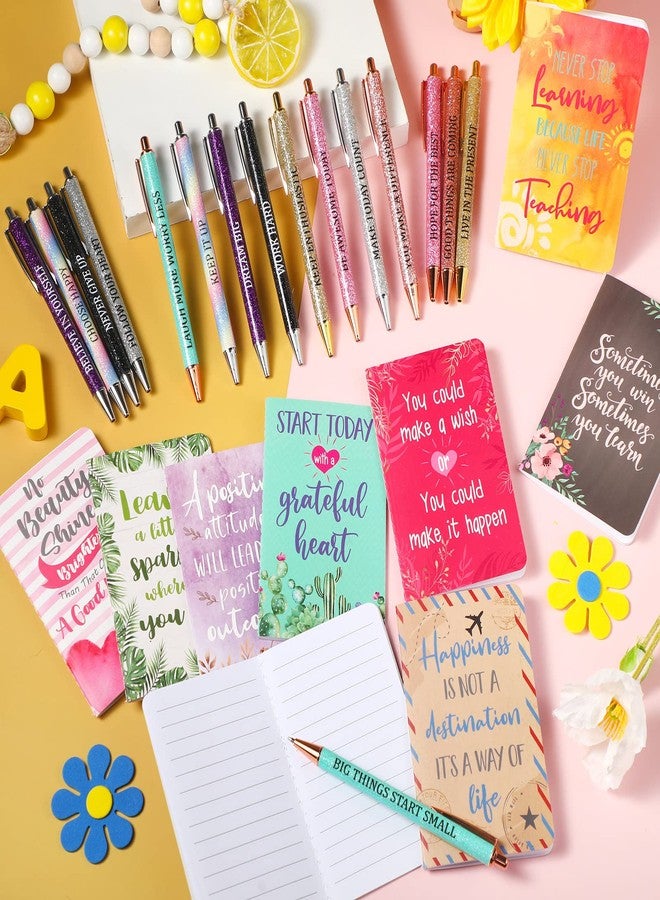 NEVER STOP
Learning
BECAUSE LIFE
NEVER STOP
Teaching
BELIEVE IN YOURSELF
CHOOSE HAPPY
NEVER GIVE UP
FOLLOW YOUR HEART
LAUGH MORE WORRY LESS
KEEP IT UP
DREAM BIG
WORK HARD
KEEP ENTHUSIASTIC
BE AWESOME TODAY
MAKE TODAY COUNT
YOU MAKE A DIFFERENCE
HOPE FOR THE BEST
GOOD THINGS ARE COMING
LIVE IN THE PRESENT
Sometimes
you win
Sometimes
you learn
No
Beauty
Shine
Brighter
Than That
A Good
Leave
a little
spark
where
you
A positive
attitude
WILL LEAD
positive
outcome
START TODAY
with a
grateful
heart
You could
make a wish
or
You could
make it happen
Happiness
IS NOT A
destination
IT'S A WAY OF
life
BIG THINGS START SMALL
A